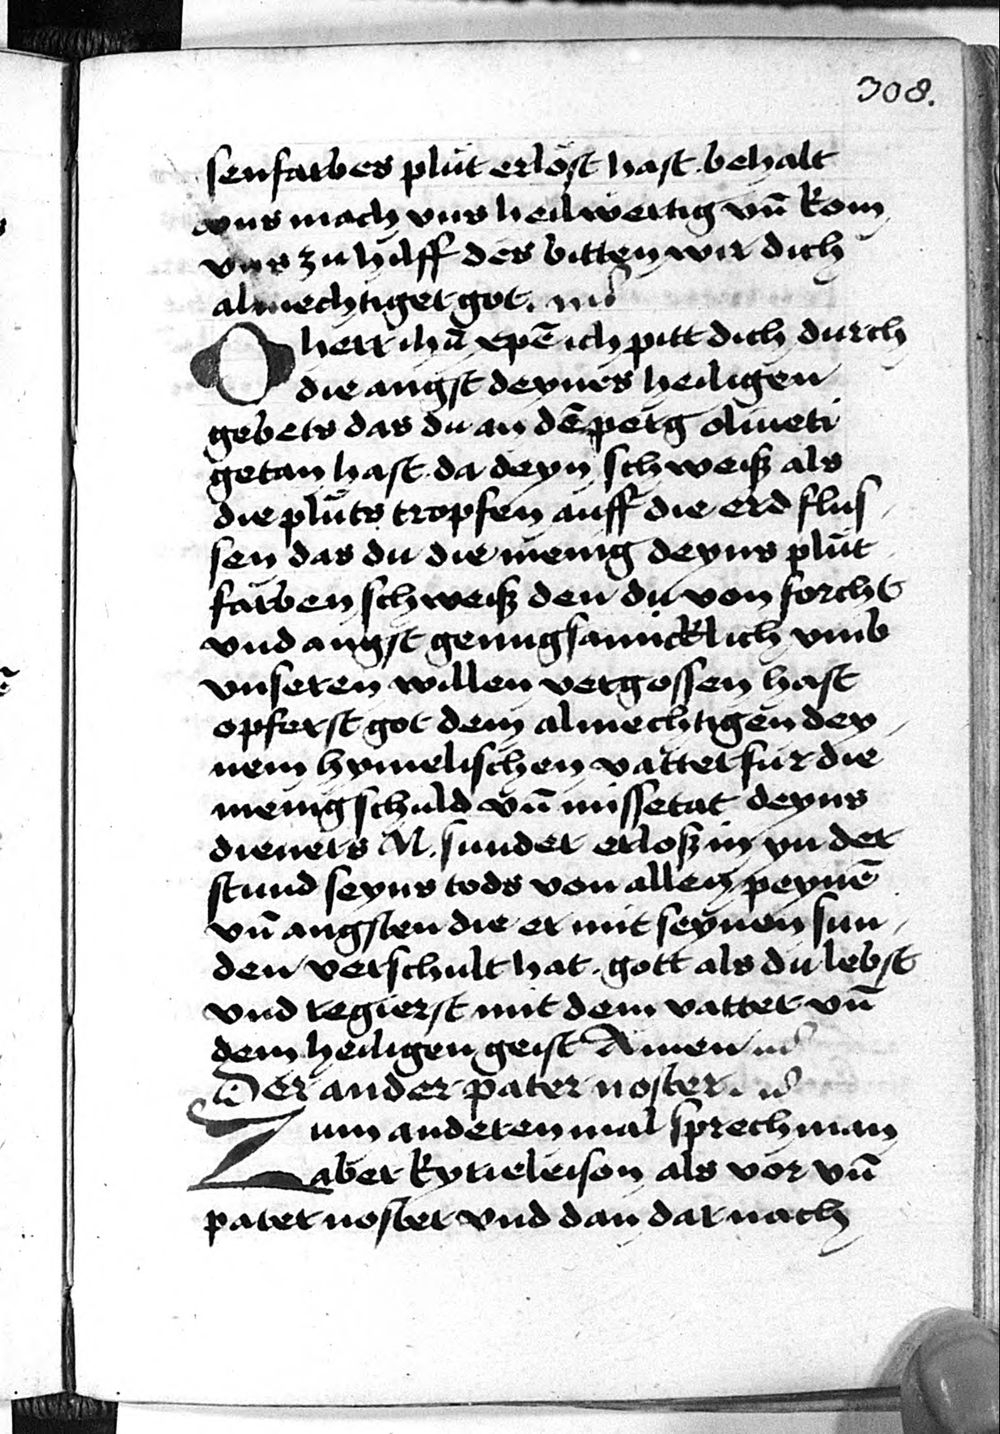 308.
senfarbes plüt erlöst hast behalt
vns mach vns heilwertig vn̄ kom
vns zu hilff des bitten wir dich
almechtiger got.
O herr ihū xpē ich pitt dich durch
die angst deynes heiligen
gebets das du an dē perg oliueti
getan hast da deyn schweiß als
die plüts tropfen auff die erd flus
sen das du die menig deyns plüt
farben schweiß den du von forcht
vnd angst genugsamicklich vmb
vnseren willen vergossen hast
opferst got dem almechtigen dey
nem hymelischen vatter für die
menig schuld vn̄ missetat deyns
dieners N. sunder erloß in yn der
stund seyns tods von allen peynē
vn̄ angsten die er mit seynen sun
den verschult hat. gott als du lebst
vnd regierst mit dem vatter vn̄
dem heiligen geist Amen
Der ander pater noster.
Zum anderen mal sprech man
aber kyrieleison als vor vn̄
pater noster vnd dan darnach